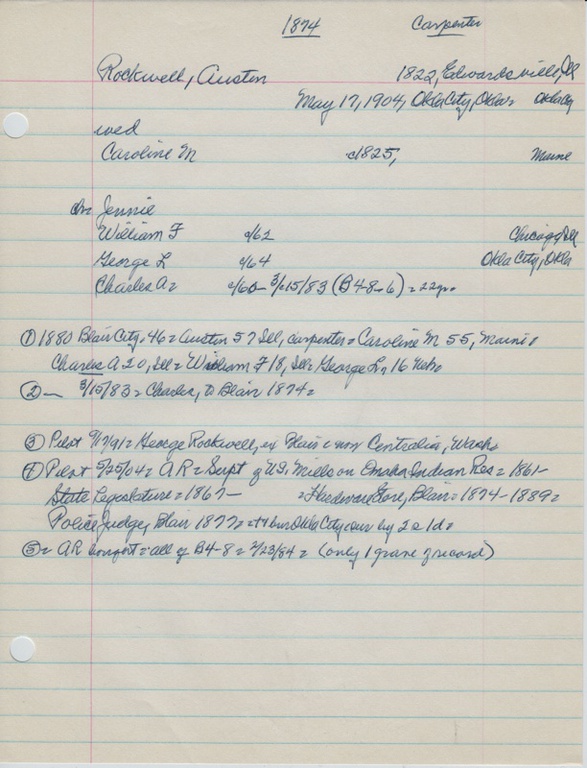 1874 Carpenter
Rockwell, Austin 1822, Edwardsville, Ill
May 17, 1904, Okla City, Okla= Okla City
wed
Caroline M c1825, Maine
ch= Jennie
William F c/62 Chicago, Ill
George L c/64 Okla City, Okla
Charles A= c/60- 3/15/83 (B4-8-6) = 22yr=
① 1880 Blair City= 46= Austin 57 Ill, carpenter= Caroline M 55, Maine=
Charles A 20, Ill= William F 18, Ill= George L, 16 Neb=
② — 3/15/83 = Charles, to Blair 1874=
③ Pilot 9/17/91= George Rockwell, ex Blair = now Centralia, Wash=
④ Pilot 5/25/04= AR= Supt of U.S. Mills on Omaha Indian Res= 1861-
State Legislature= 1867- = Hardware Store, Blair= 1874-1889=
Police Judge, Blair 1877= Okla City 2 s 1d=
⑤= AR bought= all of B4-8= 2/23/84= (only 1 grave of record)